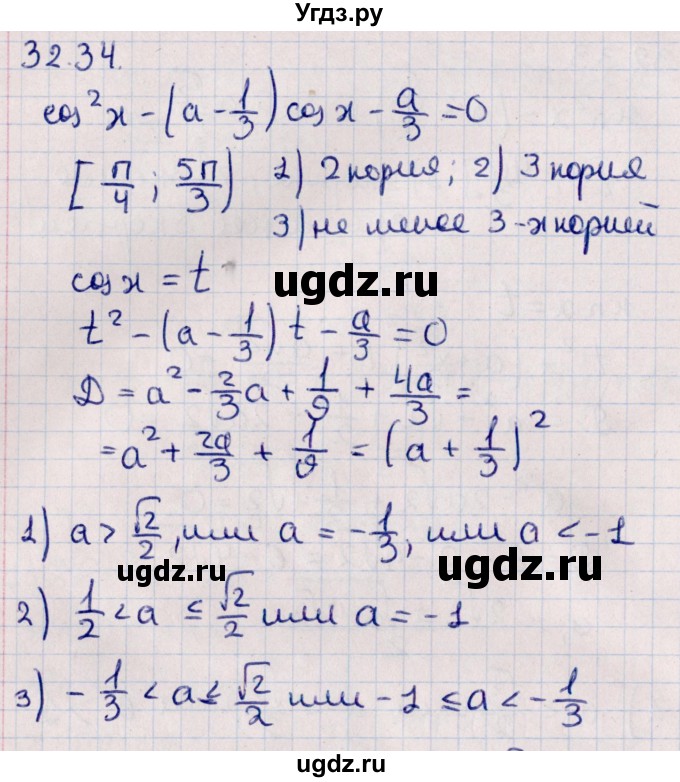 Угдз.ру
32.34.
cos²x - (a - 1/3) cos x - a/3 = 0
[π/4 ; 5π/3) 1) 2 корня; 2) 3 корня
3) не менее 3-х корней
ugdz.ru
ugdz.ru
cos x = t
t² - (a - 1/3) t - a/3 = 0
D = a² - 2/3 a + 1/9 + 4a/3 =
= a² + 2a/3 + 1/9 = (a + 1/3)²
1) a > √2/2, или a = -1/3, или a < -1
ugdz.ru
ugdz.ru
2) 1/2 < a ≤ √2/2 или a = -1
3) -1/3 < a ≤ √2/2 или -1 ≤ a < -1/3
ugdz.ru
ugdz.ru